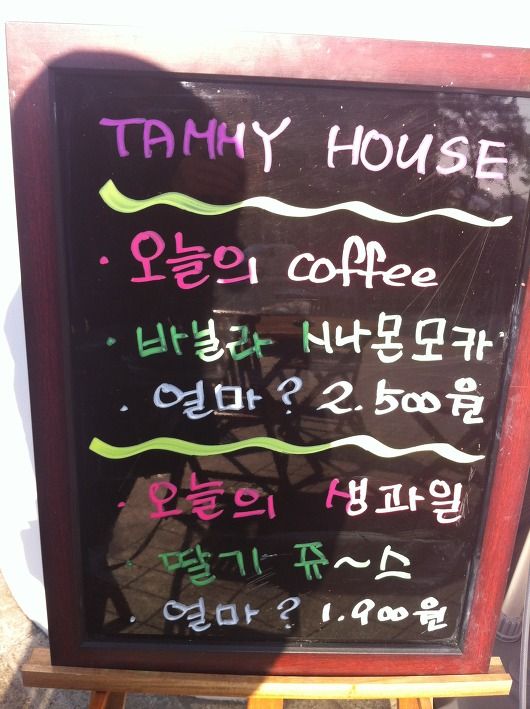 TAMMY HOUSE
· 오늘의 coffee
· 바닐라 시나몬모카
· 열마? 2.500원
· 오늘의 생과일
· 딸기 쥬~스
· 열마? 1.900원